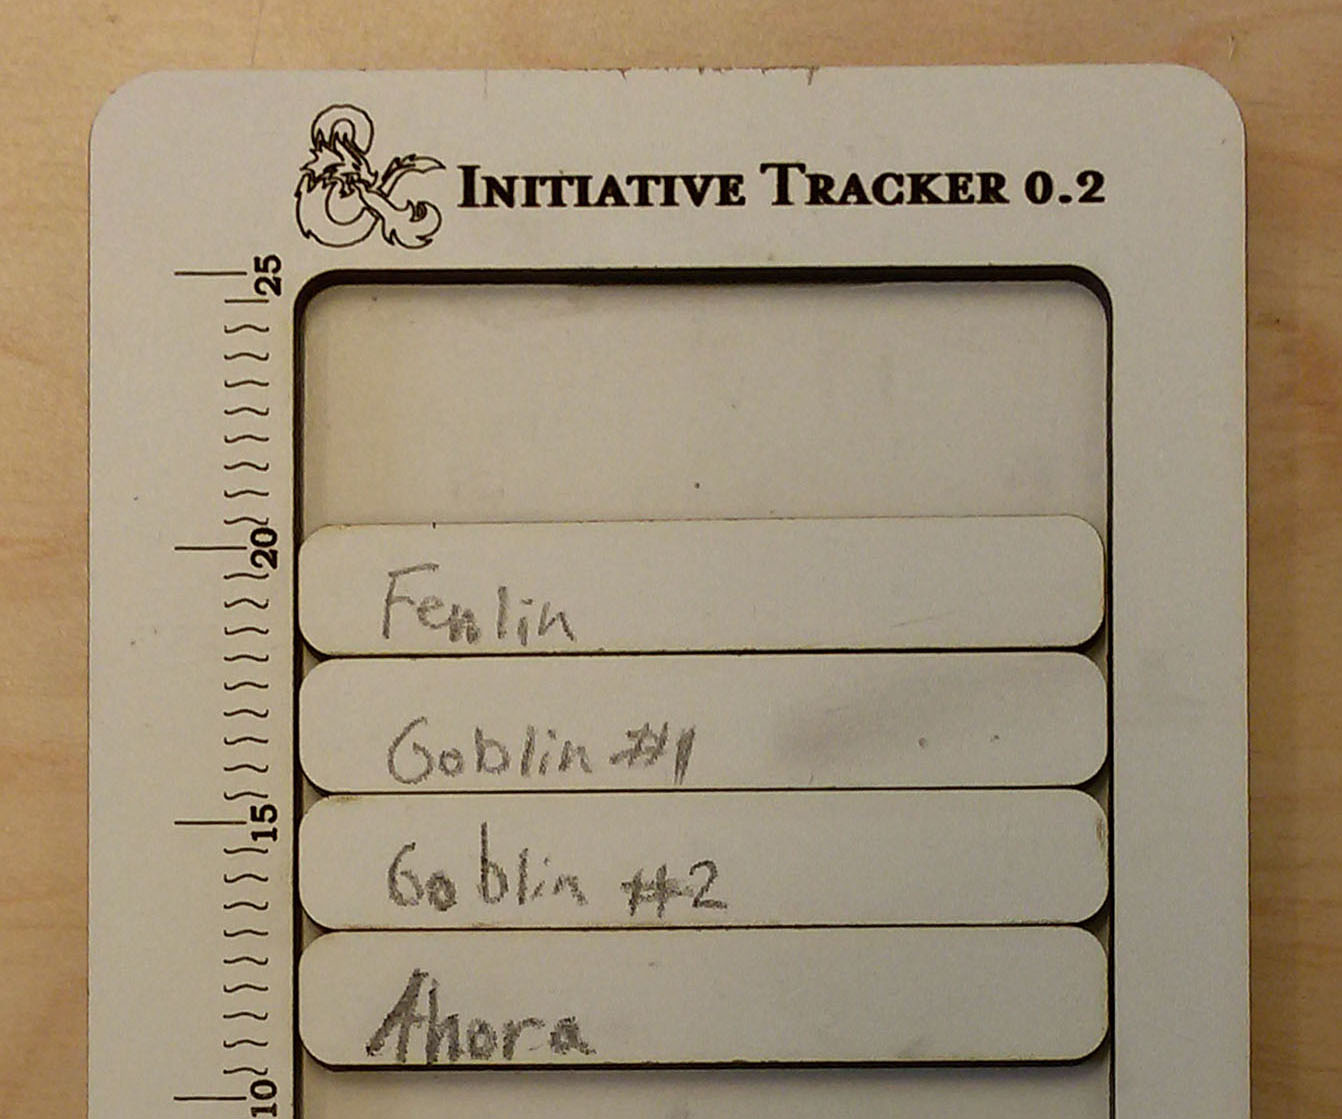 INITIATIVE TRACKER 0.2
25
20
Fenlin
Goblin #1
15
Goblin #2
Ahora
10